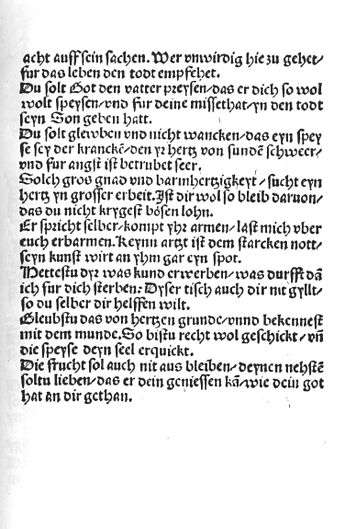 acht auff sein sachen. Wer vnwirdig hie zu gehet/
fur das leben den todt empfehet.
Du solt Got den vatter preysen/das er dich so wol
wolt speysen/vnd fur deine missethat/yn den todt
seyn Son geben hatt.
Du solt glewben vnd nicht wancken/das eyn spey
se sey der kranckē/den yr hertz von sunden̄ schweer/
vnd fur angst ist betrubet seer.
Solch gros gnad vnd barmhertzigkeyt/sucht eyn
hertz yn grosser erbeit. Ist dir wol so bleib daruon/
das du nicht krygest bösen lohn.
Er spricht selber/kompt yhr armen/last mich vber
euch erbarmen. Keynn artzt ist dem starcken nott/
seyn kunst wirt an yhm gar eyn spot.
Hettestu dyr was kund erwerben/was durfft dā
ich fur dich sterben: Dyser tisch auch dir nit gyllt/
so du selber dir helffen wilt.
Gleubstu das von hertzen grunde/vnnd bekennest
mit dem munde. So bistu recht wol geschickt/vñ
die speyse deyn seel erquickt.
Die frucht sol auch nit aus bleiben/deynen nehsten̄
soltu lieben/das er dein geniessen kā/wie dein got
hat an dir gethan.